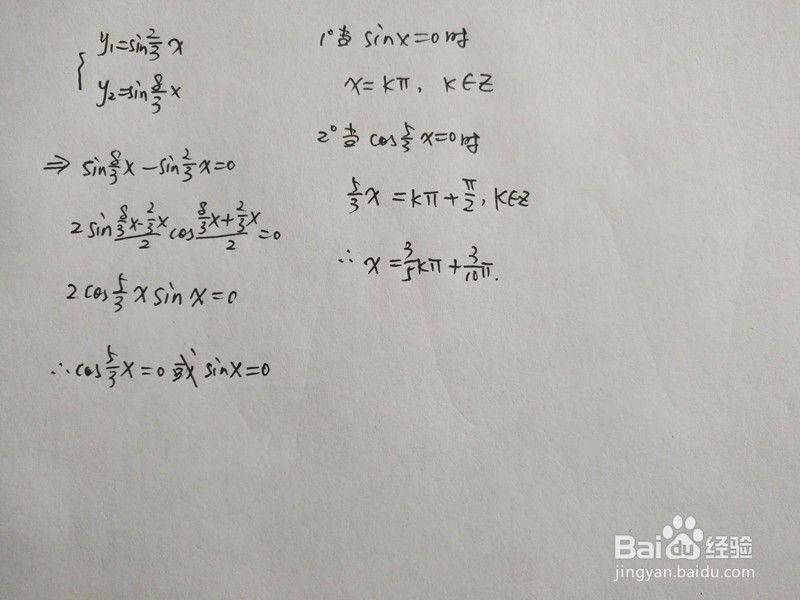 y₁=sin2/3 x
y₂=sin8/3 x
⇒ sin8/3x-sin2/3x=0
2 sin(8/3x-2/3x)/2 cos(8/3x+2/3x)/2=0
2cos5/3 x sin x=0
∴cos5/3x=0或sinx=0
1°当 sinx=0时
x=kπ, k∈Z
2°当 cos5/3x=0时
5/3x=kπ+π/2, k∈Z
∴ x=3/5kπ+3/10π.
Baidu经验
jingyan.baidu.com